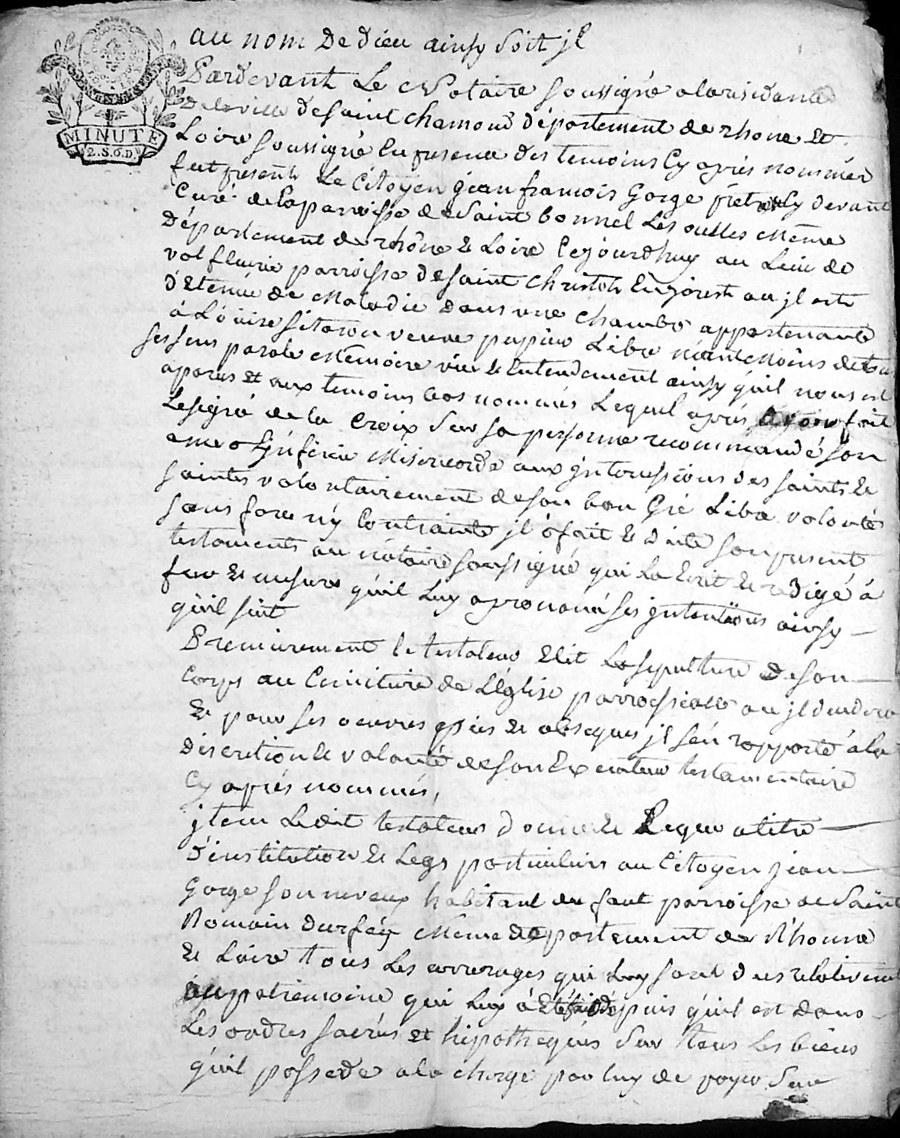 au nom De dieu ainsy soit jl
MINUTE
2.S.6.D.
Pardevant Le Notaire soussigné alaresidance
Delaville desaint chamond département de rhone et
Loire soussigné En presence des temoins Cy aprés nommés
fut present Le Citoyen jean francois Gorge prêtre Cy devant
Curé de laparroisse de Saint bonnet Les oulles même
Département de rhône et Loire Cejourdhuy au Lieu de
volfleurie parroisse desaint Christoh Enjorest au jl este
Détenue de maladie dans une chambre appartenante
à veuve papiere Libre néantmoins detous
ses sens parole mémoire vie et Entendement ainsy quil nous est
aparus et aux temoins bas nommés Lequel aprés avoir fait
Lesigne de la Croix sur sa personne recommandé son
ame miséricorde aux jntercessions des saints et
saintes volontairement deson bon Gré Libre volonté
sans force n'y Contrainte jl à fait et dicte son present
testament au nôtaire soussigné qui La Ecrit et redigé à
fur et mesure qu'il Luy aprononcé ses jntentions ainsy
qu'il suit
Premierement le testateur Elit Lasepulture de son
Corps au Cimitiere de L'église parroissialle ou jl decedera
Et pour ses oeuvres pies et obseques jl s'en rapporte à la
discretion et volonté deson Executeur testamentaire
Cy aprés nommés,
jtem Ledit testateur donne et Legue atitre
D'institution et Legs particuliers au Citoyen jean
Gorge son neveux habitant du faut parroisse de Saint
Romain Durfey même département de Rhonne
et Loire tous Les arrerages qui Luy sont dues relativement
au patrimoine qui Luy à Eté fait depuis qu'il est dans
Les ordres sacrés et hipothequés sur tous Les biens
qu'il possede ala charge par luy de payer sur